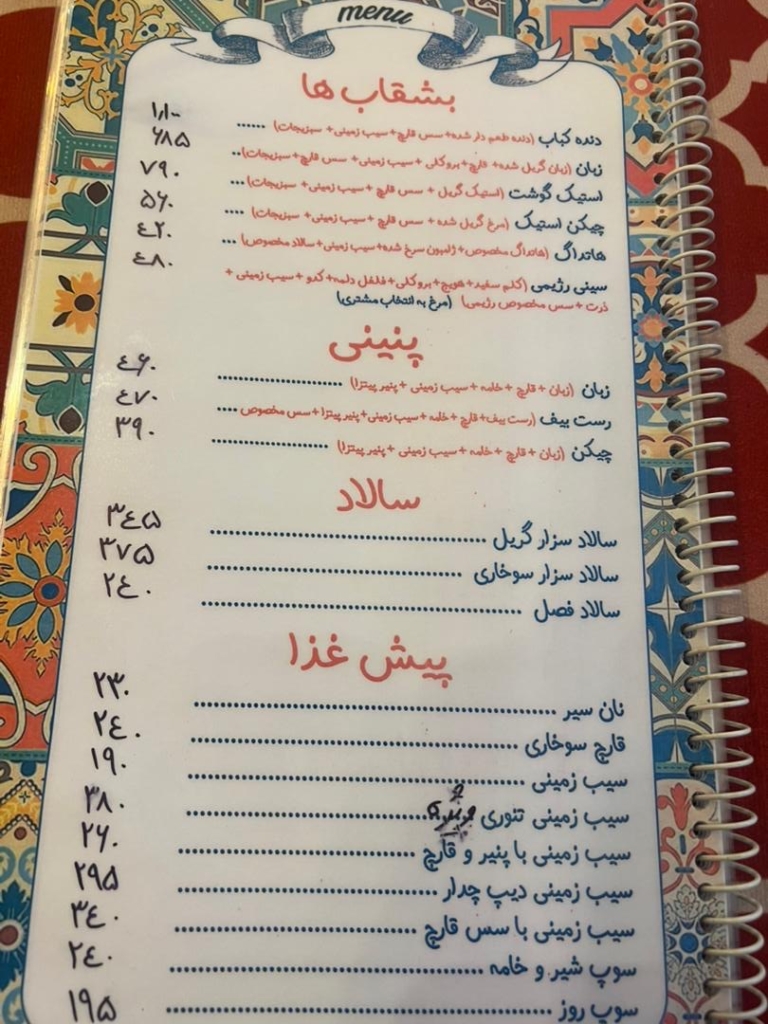 menu
بشقاب ها
دنده کباب (دنده طعم دار شده+ سس قارچ+ سیب زمینی+ سبزیجات) ......
زبان (زبان گریل شده+ قارچ+بروکلی + سیب زمینی+ سس قارچ+سبزیجات).. ۶۸۵
استیک گوشت (استیک گریل + سس قارچ + سیب زمینی+ سبزیجات)... ۷۹۰
چیکن استیک (مرغ گریل شده + سس قارچ + سیب زمینی+ سبزیجات) .... ۵۶۰
هاتداگ (هاتداگ مخصوص+ ژامبون سرخ شده+سیب زمینی+سالاد مخصوص) ... ٤۲۰
سینی رژیمی (کلم سفید+ هویج+ بروکلی+ فلفل دلمه+ کدو + سیب زمینی + ٤۸۰
ذرت + سس مخصوص رژیمی) (مرغ به انتخاب مشتری)
پنینی
زبان (زبان + قارچ + خامه + سیب زمینی + پنیر پیتزا) ...................... ٤۶۰
رست بیف (رست بیف+ قارچ + خامه + سیب زمینی+ پنیر پیتزا + سس مخصوص .... ٤۷۰
چیکن (زبان + قارچ + خامه + سیب زمینی + پنیر پیتزا) ...................... ۳۹۰
سالاد
سالاد سزار گریل ........................................ ۳٤۵
سالاد سزار سوخاری ..................................... ۳۷۵
سالاد فصل ............................................. ۲٤۰
پیش غذا
نان سیر .................................................... ۲۳۰
قارچ سوخاری ............................................. ۲٤۰
سیب زمینی ................................................ ۱۹۰
سیب زمینی تنوری .................................. ۳۸۰
سیب زمینی با پنیر و قارچ ............................... ۲۶۰
سیب زمینی دیپ چدار .................................. ۲۹۵
سیب زمینی با سس قارچ ................................ ۳٤۰
سوپ شیر و خامه ......................................... ۲٤۰
سوپ روز .................................................. ۱۹۵